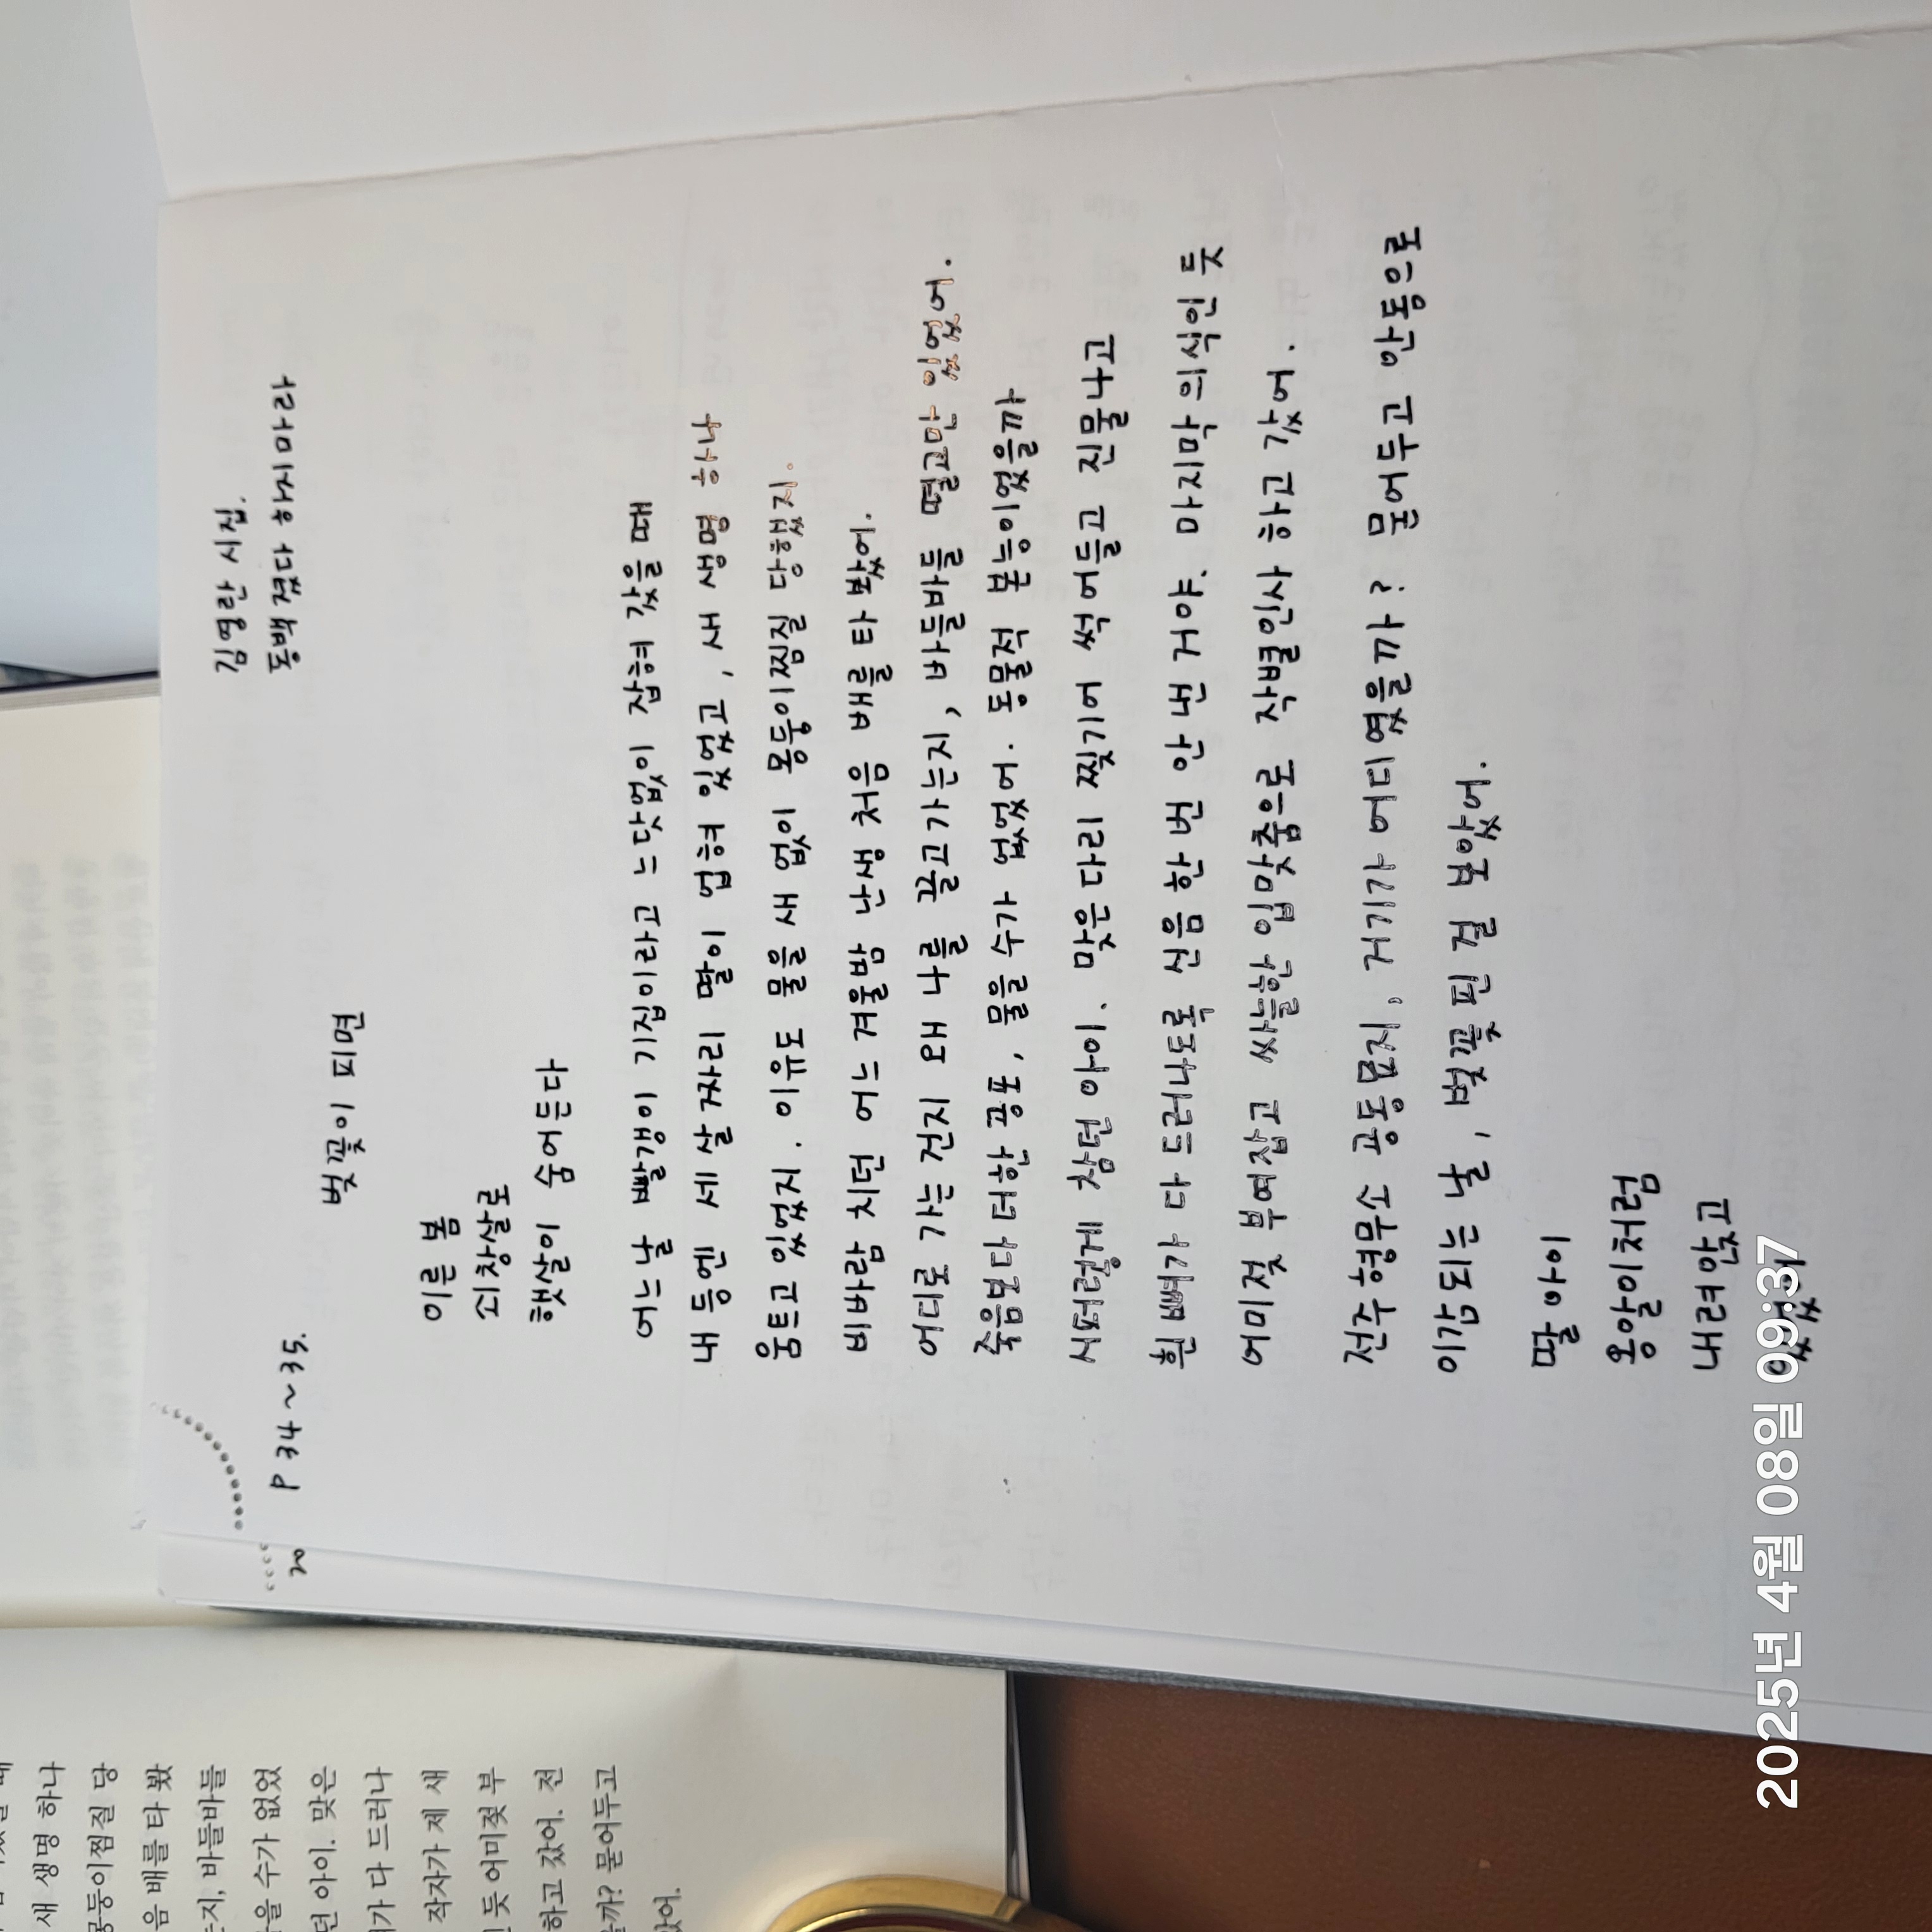 김영란 시집.
동백 졌다 하지마라
20 P 34 ~ 35.
벚꽃이 피면
이른 봄
쇠창살로
햇살이 숨어든다
어느날 빨갱이 기집이라고 느닷없이 잡혀 갔을 때
내 등엔 세 살 짜리 딸이 업혀 있었고, 새 생명 하나
움트고 있었지. 이유도 물을 새 없이 몽둥이찜질 당했지.
비바람 치던 어느 겨울밤 난생 처음 배를 타 봤어.
어디로 가는 건지 왜 나를 끌고가는지, 바들바들 떨고만 있었어.
죽음보다 더한 공포, 물을 수가 없었어. 동물적 본능이었을까
시퍼렇게 참던 아이. 맞은 다리 찢기어 썩어들고 진물나고
흰뼈가 다 드러나도록 신음 한 번 안 낸 거야. 마지막 의식인 듯
어미젖 부여잡고 싸늘한 입맞춤으로 작별인사 하고 갔어.
전주 형무소 공동묘지, 거기가 어디였을까? 묻어두고 안동으로
이감되는 날, 벚꽃 핀 걸 보았어.
딸아이
옹알이처럼
내려앉고
있었어
2025년 4월 08일 09:37
새 생명 하나
몽둥이찜질 당
음 배를 타 봤
는지, 바들바들
을 수가 없었
던 아이. 맞은
가 다 드러나
작자가 제 새
인 듯 어미젖 부
하고 갔어. 전
을까? 묻어두고
았어.